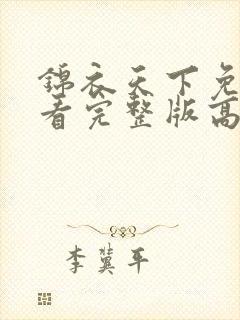 錦衣天下免
看完整版高
李冀平